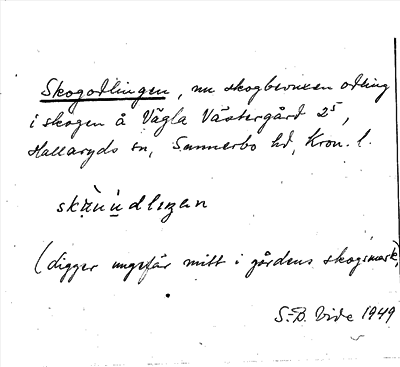 Skogodlingen, nu skogbevuxen odling
i skogen å Vägla Västergård 2⁵,
Hallaryds sn, Sunnerbo hd, Kron. l.
(digger ungefär mitt i gårdens skogsmark)
S.-B. Vide 1949